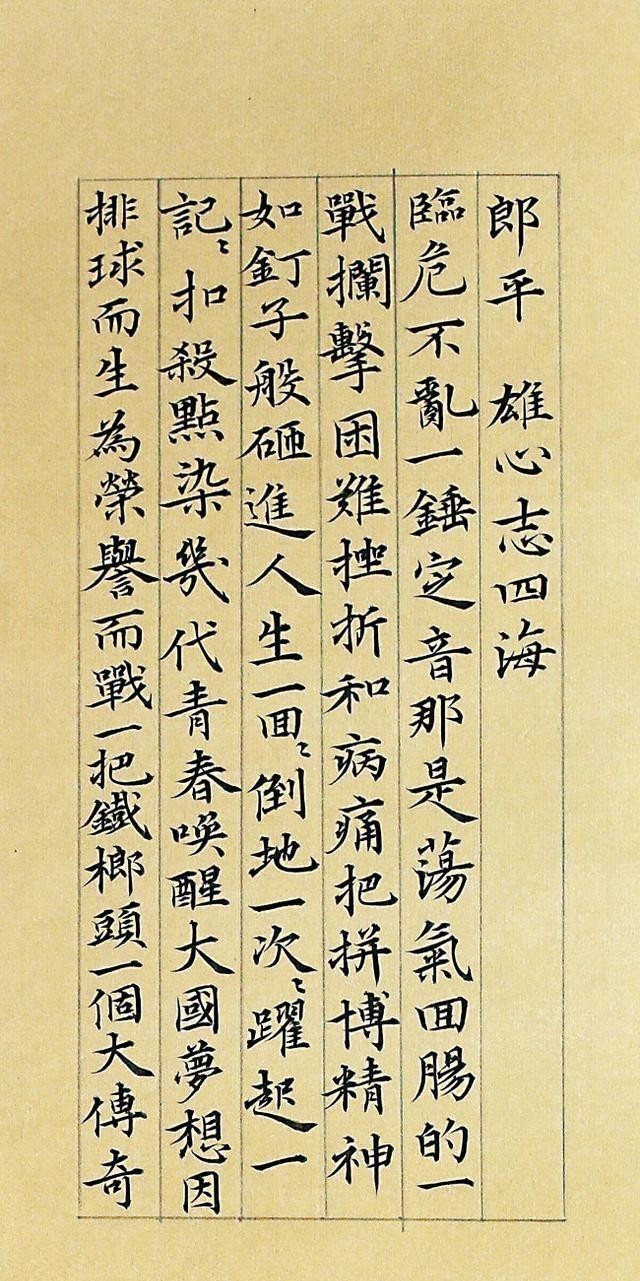 郎平 雄心志四海
臨危不亂一錘定音那是蕩氣回腸的一
戰攔擊困難挫折和病痛把拼博精神
如釘子般砸進人生一回〻倒地一次〻躍起一
記〻扣殺點染幾代青春喚醒大國夢想因
排球而生為榮譽而戰一把鐵榔頭一個大傳奇